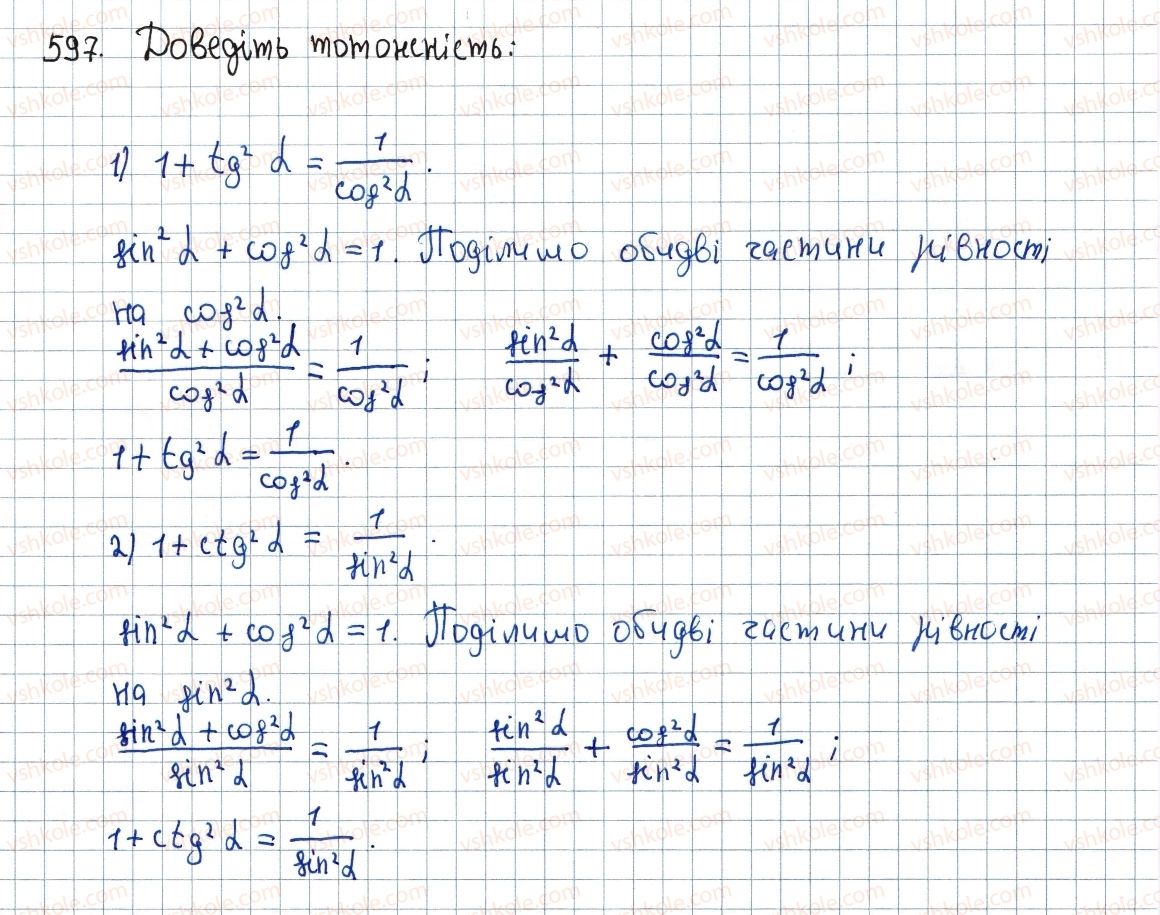 597. Доведіть тотожність:
1) 1 + tg² α = 1/cos²α.
sin² α + cos²α = 1. Поділимо обидві частини рівності
на cos²α.
(sin²α + cos²α)/cos²α = 1/cos²α; sin²α/cos²α + cos²α/cos²α = 1/cos²α;
1 + tg² α = 1/cos²α.
2) 1 + ctg² α = 1/sin²α.
sin²α + cos²α = 1. Поділимо обидві частини рівності
на sin²α.
(sin²α + cos²α)/sin²α = 1/sin²α; sin²α/sin²α + cos²α/sin²α = 1/sin²α;
1 + ctg² α = 1/sin²α.